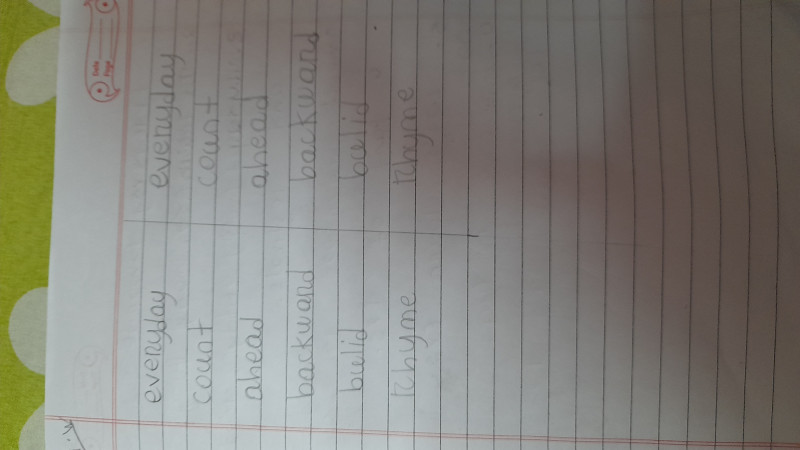 Date
Page
everyday everyday
count count
ahead ahead
backward backward
bulid bulid
Rhyme Rhyme